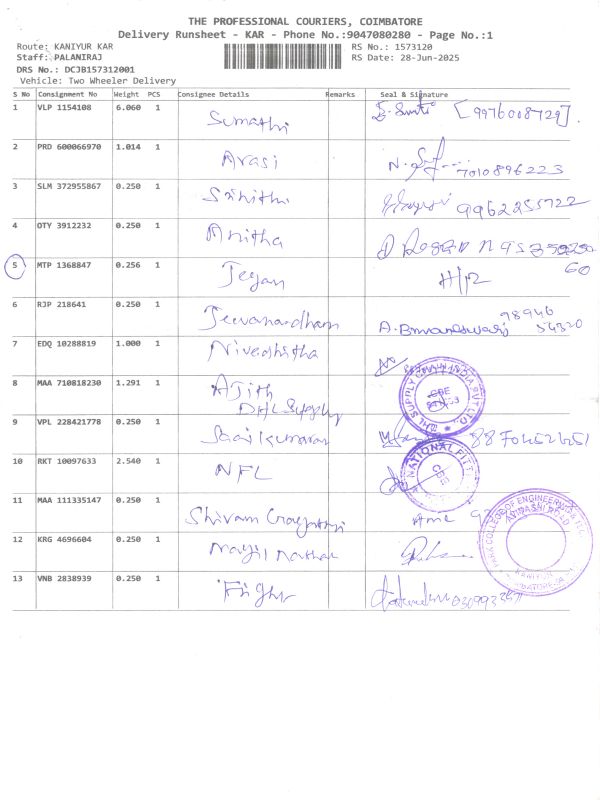 THE PROFESSIONAL COURIERS, COIMBATORE
Delivery Runsheet - KAR - Phone No.:9047080280 - Page No.:1
Route: KANIYUR KAR RS No.: 1573120
Staff: PALANIRAJ RS Date: 28-Jun-2025
DRS No.: DCJB157312001
Vehicle: Two Wheeler Delivery
S No Consignment No Weight PCS Consignee Details Remarks Seal & Signature
1 VLP 1154108 6.060 1 Sumathi [9976008729]
2 PRD 600066970 1.014 1 Arasi 7010896223
3 SLM 372955867 0.250 1 Srinithi 9962255722
4 OTY 3912232 0.250 1 Anitha
5 MTP 1368847 0.256 1 Jegan 60
6 RJP 218641 0.250 1 Jeevanandham A. Bhuvaneswari 98946 54320
7 EDQ 10288819 1.000 1 Nivedhitha
8 MAA 710818230 1.291 1 Ajith
DHL Supply
9 VPL 228421778 0.250 1 Saai Kumaran
10 RKT 10097633 2.540 1 NFL NATIONAL FITT
11 MAA 111335147 0.250 1 Shivam Gayathri
12 KRG 4696604 0.250 1
13 VNB 2838939 0.250 1
PARK COLLEGE OF ENGINEERING
AVINASHI ROAD
KANIYUR